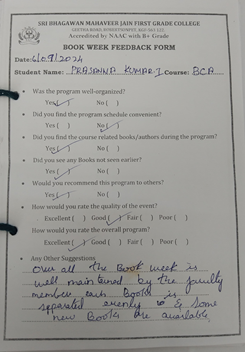 SRI BHAGAWAN MAHAVEER JAIN FIRST GRADE COLLEGE
GEETHA ROAD, ROBERTSONPET, KGF-563 122.
Accredited by NAAC with B+ Grade
BOOK WEEK FEEDBACK FORM
Date: 6/09/2024
Student Name: PRASANNA KUMAR.J Course: BCA
• Was the program well-organized?
Yes( ✓ ) No ( )
• Did you find the program schedule convenient?
Yes ( ) No ( )
• Did you find the course related books/authors during the program?
Yes ( ✓ ) No ( )
• Did you see any Books not seen earlier?
Yes ( ✓ ) No ( )
• Would you recommend this program to others?
Yes ( ✓ ) No ( )
• How would you rate the quality of the event?
Excellent ( ) Good ( ✓ ) Fair ( ) Poor ( )
• How would you rate the overall program?
Excellent ( ✓ ) Good ( ) Fair ( ) Poor ( )
• Any Other Suggestions
Over all the Book week is
well maintained by the faculty
member each Books is
separated evenly & some
new Books are available